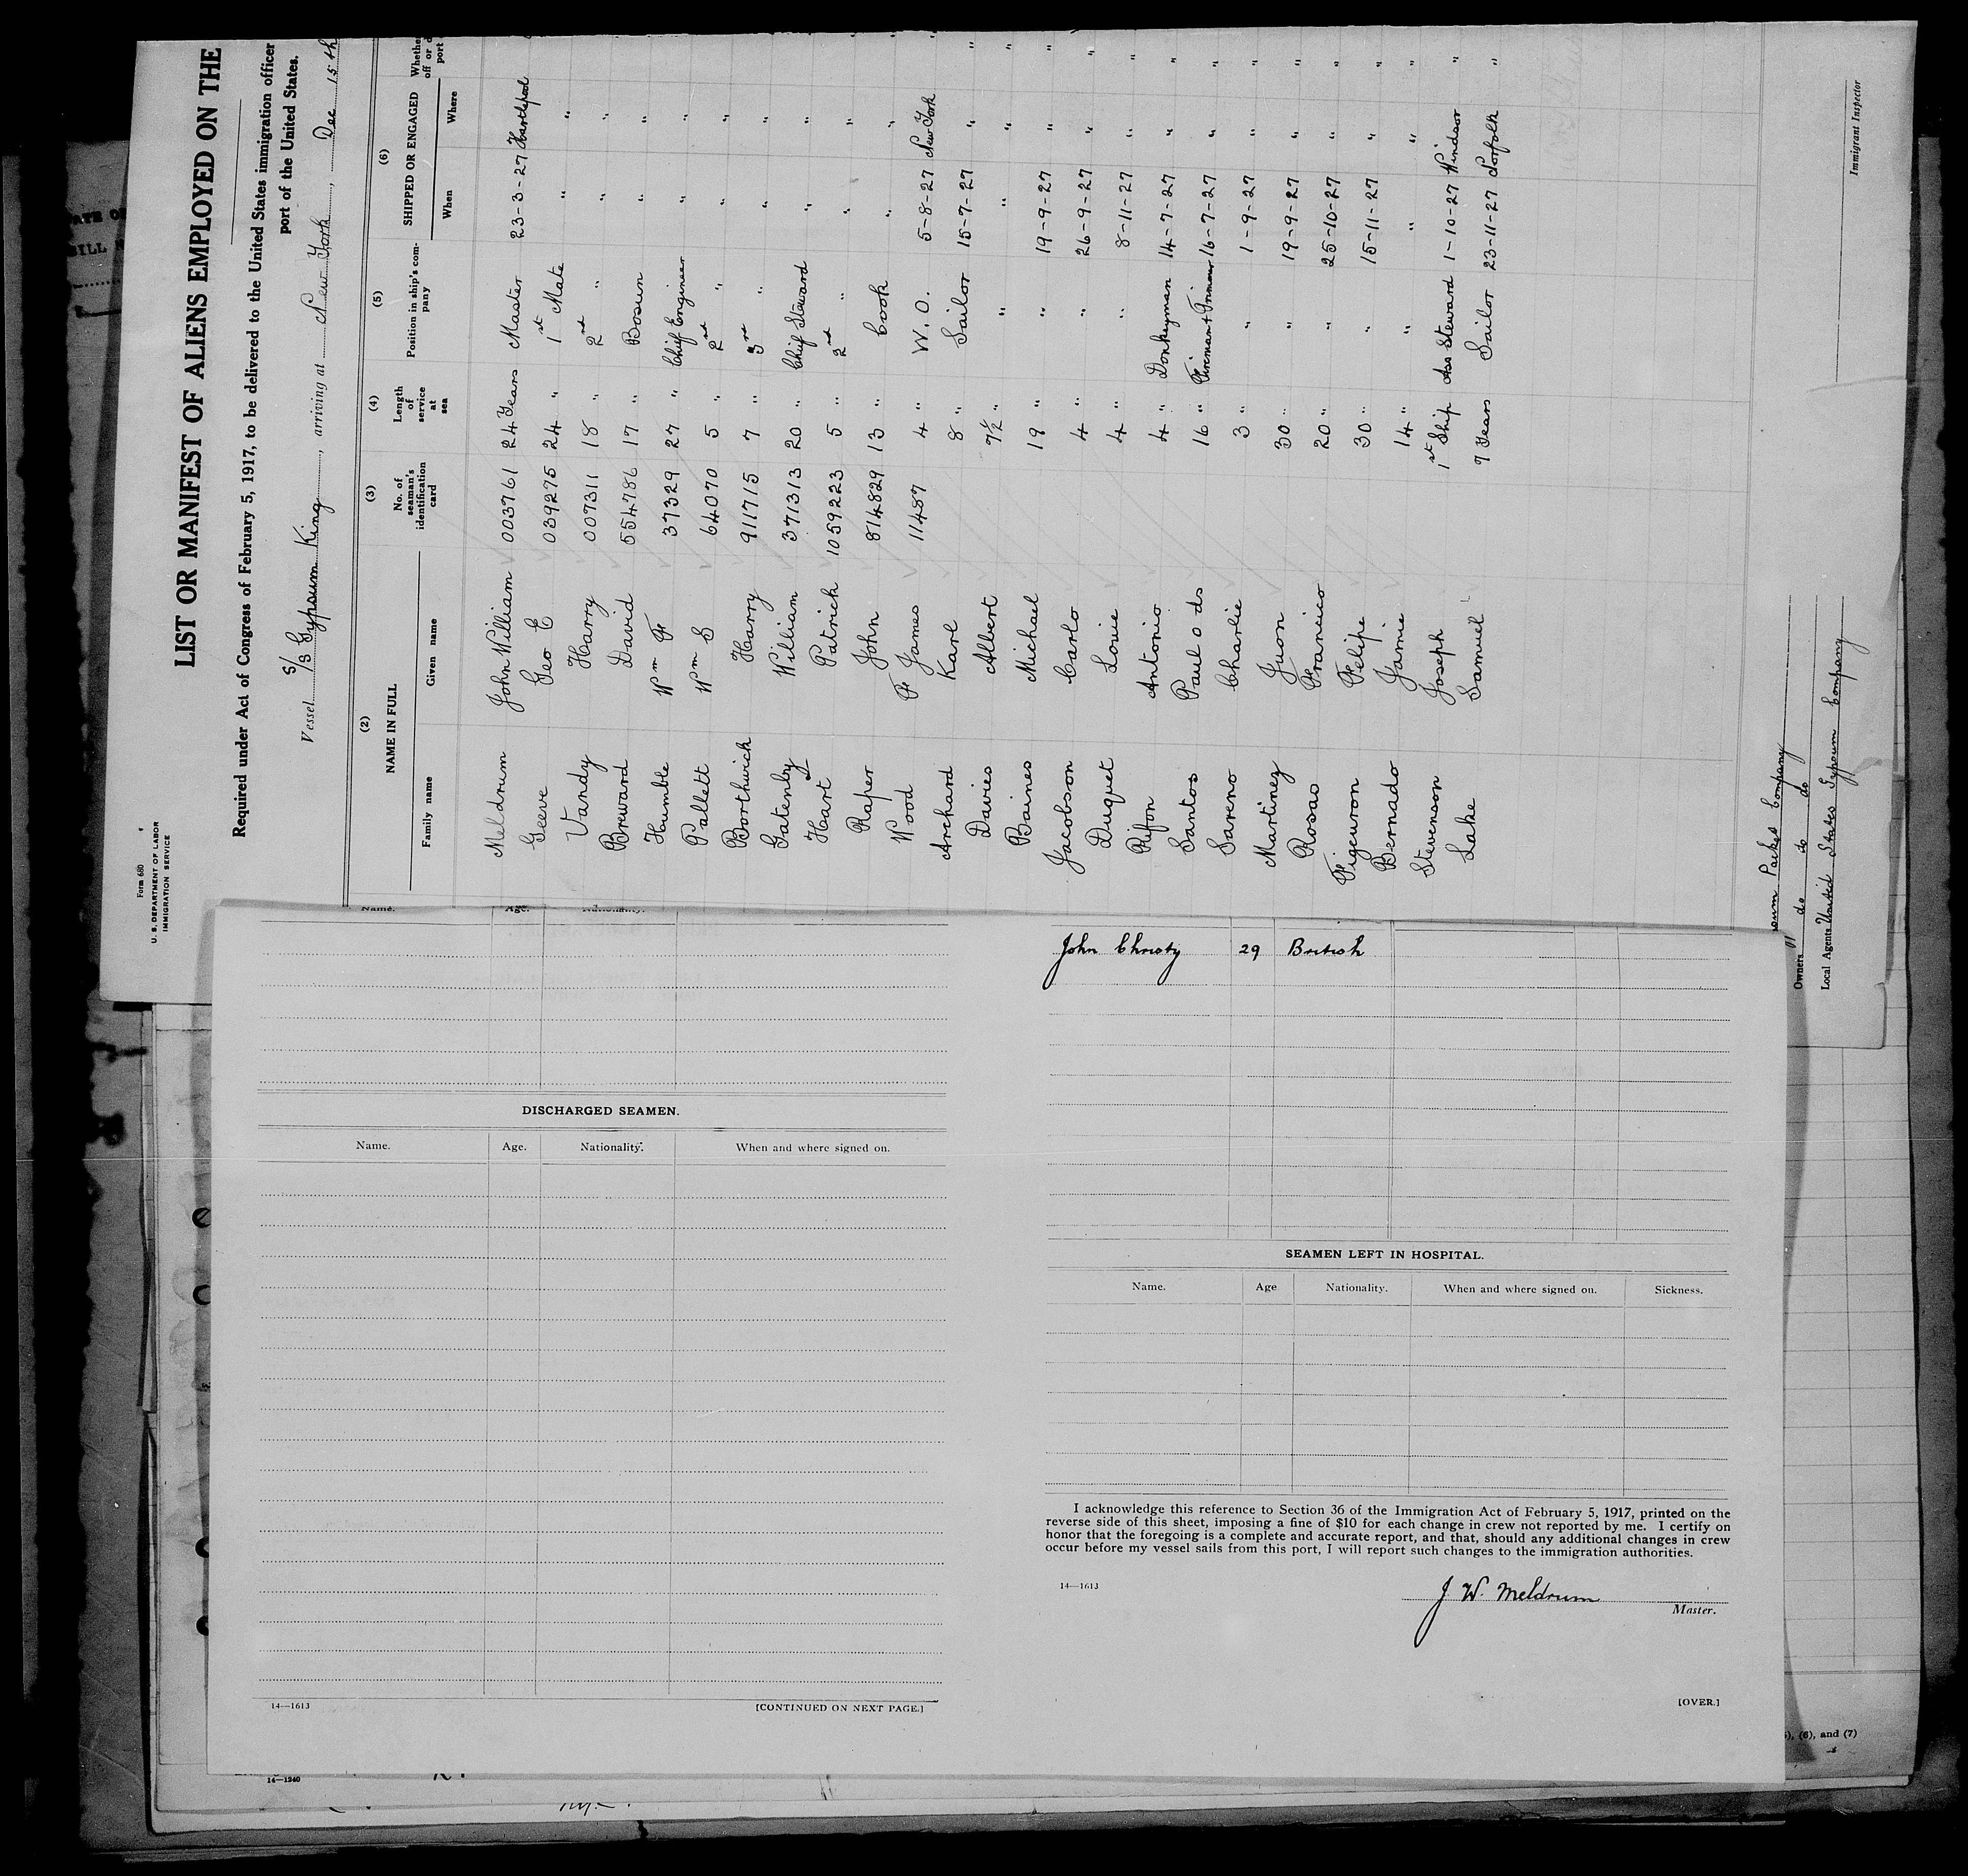 Form 680
U. S. DEPARTMENT OF LABOR
IMMIGRATION SERVICE
LIST OR MANIFEST OF ALIENS EMPLOYED ON THE
Required under Act of Congress of February 5, 1917, to be delivered to the United States immigration officer
port of the United States.
Vessel S/S Gypsum King, arriving at New York, Dec 15th
(2) (3) (4) (5) (6)
NAME IN FULL No. of seaman's identification card Length of service at sea Position in ship's company SHIPPED OR ENGAGED Whethe
off or d
port
Family name Given name When Where
Meldrum John William 003761 24 Years Master 23-3-27 Hartlepool
Geeve Geo E 039275 24 " 1st Mate " " "
Vandy Harry 007311 18 " 2nd " " " "
Breward David 554786 17 " Bosun " " "
Humble Wm F 37329 27 " Chief Engineer " " "
Pallett Wm S 64070 5 " 2nd " " " "
Borthwick Harry 911715 7 " 3rd " " " "
Gatenby William 371313 20 " Chief Steward " " "
Hart Patrick 1059223 5 " 2nd " " " "
Raper John 814829 13 " Cook " " "
Wood F James 11487 4 " W.O. 5-8-27 New York "
Archard Karl 8 " Sailor 15-7-27 " "
Davies Albert 7½ " " " " "
Baines Michael 19 " " 19-9-27 " "
Jacobson Carlo 4 " " 26-9-27 " "
Duquet Louie 4 " " 8-11-27 " "
Rifon Antonio 4 " Donkeyman 14-7-27 " "
Santos Paul o ds 16 " Fireman & Trimmer 16-7-27 " "
Sareno Charlie 3 " " 1-9-27 " "
Martinez Juon 30 " " 19-9-27 " "
Rosao Francisco 20 " " 25-10-27 " "
Figeuron Felipe 30 " " 15-11-27 " "
Bernado Jamie 14 " " " " "
Stevenson Joseph 1st Ship Ass Steward 1-10-27 Windsor "
Lake Samuel 7 Years Sailor 23-11-27 Norfolk "
Packet Company
Owners do do do
Local Agents United States Gypsum Company
Immigrant Inspector
Name. Age. Nationality.
John Christy 29 British
DISCHARGED SEAMEN.
Name. Age. Nationality. When and where signed on.
14—1613 [CONTINUED ON NEXT PAGE.]
SEAMEN LEFT IN HOSPITAL.
Name. Age Nationality. When and where signed on. Sickness.
I acknowledge this reference to Section 36 of the Immigration Act of February 5, 1917, printed on the
reverse side of this sheet, imposing a fine of $10 for each change in crew not reported by me. I certify on
honor that the foregoing is a complete and accurate report, and that, should any additional changes in crew
occur before my vessel sails from this port, I will report such changes to the immigration authorities.
14—1613
J W. Meldrum
Master.
[OVER.]
), (6), and (7)
14—1240